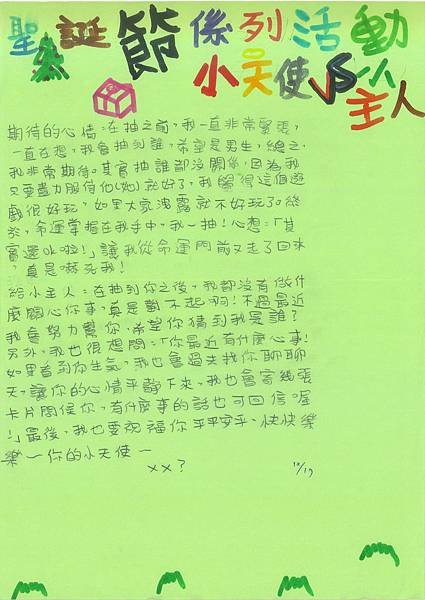 聖誕節係列活動
小天使VS小主人
期待的心情:在抽之前,我一直非常緊張,
一直在想,我會抽到誰,希望是男生,總之,
我非常期待。其實抽誰都沒關係,因為我
只要盡力服侍他(她)就好了,我覺得這個遊
戲很好玩,如果大家洩露就不好玩了。終
於,命運掌握在我手中,我一抽!心想:「其
實還ok啦!」讓我從命運門前又走了回來
,真是嚇死我!
給小主人:在抽到你之後,我都沒有做什
麼關心你事,真是對不起啊!不過最近
我會努力幫你,希望你猜到我是誰?
另外,我也很想問:「你最近有什麼心事!
如果看到你生氣,我也會過去找你聊聊
天,讓你的心情平靜下來,我也會寄幾張
卡片問侯你,有什麼事的話也可回信喔
!」最後,我也要祝福你平平安安、快快樂
樂~你的小天使~
××?
12/19